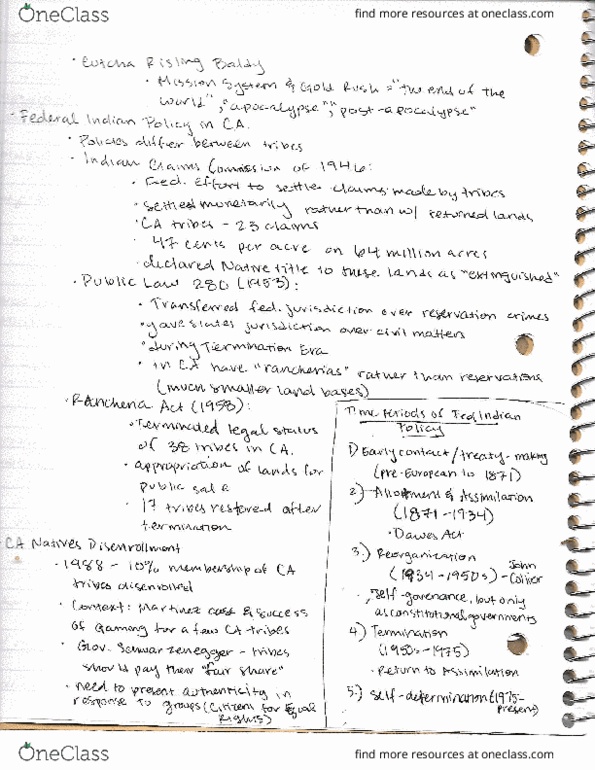 OneClass
find more resources at oneclass.com
· Cutcha Rising Baldy
· Mission System & Gold Rush = "the end of the
world", "apocalypse", "post-apocalypse"
· Federal Indian Policy in CA.
· Policies differ between tribes
· Indian Claims Commission of 1946:
· Fed. Effort to settle claims made by tribes
· settled monetarily rather than w/ returned lands
· CA tribes - 23 claims
· 47 cents per acre on 64 million acres
· declared Native title to these lands as "extinguished"
· Public Law 280 (1953):
· Transferred fed. jurisdiction over reservation crimes
· gave states jurisdiction over civil matters
· during Termination Era
· in CA have "rancherias" rather than reservations
(much smaller land bases)
· Rancheria Act (1958):
· Terminated legal status
of 38 tribes in CA.
· appropriation of lands for
public sale
· 17 tribes restored after
termination
CA Natives Disenrollment
· 1988 - 10% membership of CA
tribes disenrolled
· Context: Martinez case & success
of Gaming for a few CA tribes
· Gov. Schwarzenegger - tribes
should pay their "fair share"
· need to present authenticity in
response to groups (Citizens for Equal
Rights)
Time Periods of Fed Indian
Policy
1) Early contact / treaty-making
(pre-European to 1871)
2.) Allotment & Assimilation
(1871-1934)
· Dawes Act
3.) Reorganization
(1934-1950s) - John
Collier
· self-governance, but only
as constitutional governments
4) Termination
(1950s-1975)
· Return to Assimilation
5.) self-determination (1975-
present)
OneClass
find more resources at oneclass.com